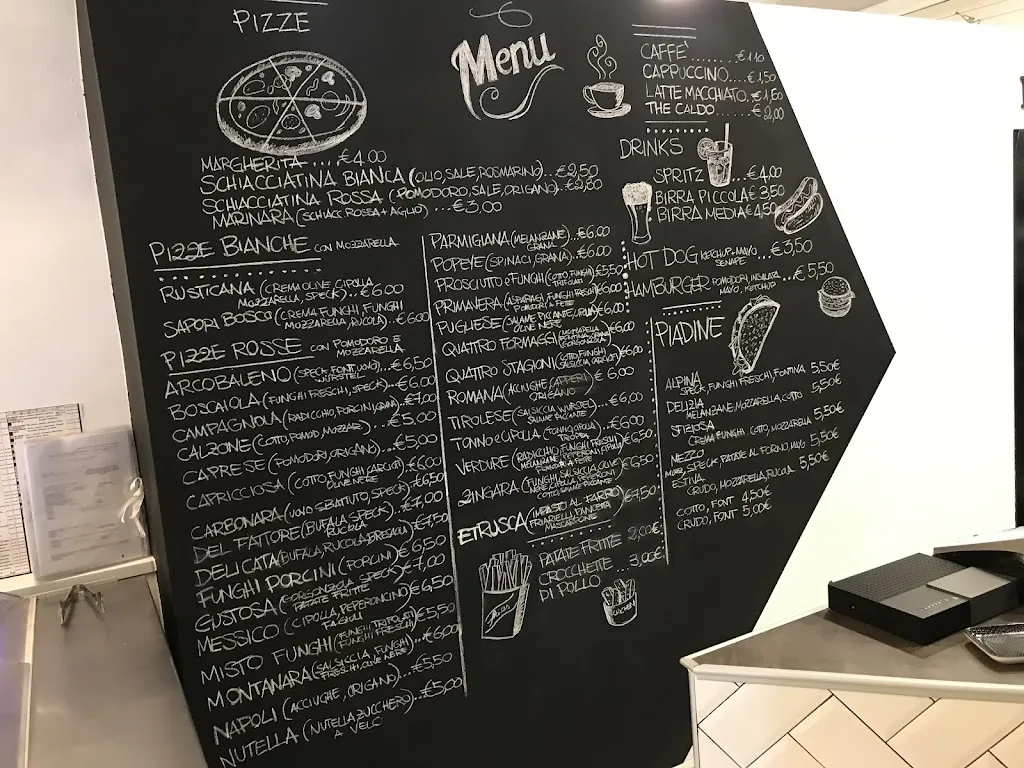 PIZZE
Menu
MARGHERITA .... €4,00
SCHIACCIATINA BIANCA (OLIO, SALE, ROSMARINO)... €2,50
SCHIACCIATINA ROSSA (POMODORO, SALE, ORIGANO)... €2,80
MARINARA (SCHIACC. ROSSA + AGLIO) ... €3,00
PIZZE BIANCHE CON MOZZARELLA
RUSTICANA (CREMA OLIVE, CIPOLLA,
MOZZARELLA, SPECK)... €6,00
SAPORI BOSCO (CREMA FUNGHI, FUNGHI
MOZZARELLA, RUCOLA) .. €6,00
PIZZE ROSSE CON POMODORO E
MOZZARELLA
ARCOBALENO (SPECK, FONT, UOVO,
WÜRSTEL) ... €6,50
BOSCAIOLA (FUNGHI FRESCHI, SPECK)... €6,00
CAMPAGNOLA (RADICCHIO, PORCINI, GRANA) €7,00
CALZONE (COTTO, POMOD, MOZZAR)... €5,00
CAPRESE (POMODORI, ORIGANO)... €5,00
CAPRICCIOSA (COTTO, FUNGHI, CARCIOF.
OLIVE NERE) €6,00
CARBONARA (UOVO SBATTUTO, SPECK) €6,50
DEL FATTORE (BUFALA, SPECK,
RUCOLA) €7,00
DELICATA (BUFALA, RUCOLA, BRESAOLA) €7,50
FUNGHI PORCINI (PORCINI) €6,50
GUSTOSA (GORGONZOLA, SPECK,
PATATE FRITTE) €7,00
MESSICO (CIPOLLA, PEPERONCINO,
FAGIOLI) €6,50
MISTO FUNGHI (FUNGHI TRIFOLATI,
FUNGHI FRESCHI) €5,50
MONTANARA (SALSICCIA, FUNGHI
FRESCHI, OLIVE NERE) €6,00
NAPOLI (ACCIUGHE, ORIGANO)... €5,50
NUTELLA (NUTELLA, ZUCCHERO
A VELO) €5,00
PARMIGIANA (MELANZANE,
GRANA) .. €6,00
POPEYE (SPINACI, GRANA) ... €6,00
PROSCIUTTO E FUNGHI (COTTO, FUNGHI
TRIFOLATI) €5,50
PRIMAVERA (ASPARAGI, FUNGHI FRESCHI
POMODORI A FETTE) €6,00
PUGLIESE (SALAME PICCANTE, CIPOLLA
OLIVE NERE) €6,00
QUATTRO FORMAGGI (MOZZARELLA
FONTINA, GORGONZ.
GRANA) €6,00
QUATTRO STAGIONI (COTTO, FUNGHI
SALSICCIA, CARCIOF) €6,00
ROMANA (ACCIUGHE, CAPPERI
ORIGANO) .. €6,00
TIROLESE (SALSICCIA, WURSTEL
SALAME PICCANTE) ... €6,00
TONNO E CIPOLLA (TONNO, CIPOLLA
TROPEA) €6,00
VERDURE (RADICCHIO, FUNGHI FRESCHI
MELANZANE, PEPERONI, CIPOLLA
POMODORI A FETTE) €6,50
ZINGARA (FUNGHI, SALSICCIA, OLIVE
NERE, CIPOLLA, CAPPERI
COTTO, SALAME PICCANTE) €6,50
ETRUSCA (IMPASTO AL FARRO
FRIARIELLI, PANCETTA
MASCARPONE) €7,50
PATATE FRITTE 2,00€
CROCCHETTE
DI POLLO ... 3,00€
CAFFE' ....... €1,10
CAPPUCCINO... €1,50
LATTE MACCHIATO.. €1,50
THE CALDO ..... €2,00
DRINKS
SPRITZ .... €4,00
BIRRA PICCOLA €3,50
BIRRA MEDIA €4,50
HOT DOG KETCHUP + MAYO
SENAPE ... €3,50
HAMBURGER POMODORI, INSALATA
MAYO, KETCHUP ... €5,50
PIADINE
ALPINA
SPECK, FUNGHI FRESCHI, FONTINA 5,50€
DELIZIA
MELANZANE, MOZZARELLA, COTTO 5,50€
SFIZIOSA
CREMA FUNGHI, COTTO, MOZZARELLA 5,50€
MEZZO
MOZZ, SPECK, PATATE AL FORNO, MAYO 5,50€
ESTIVA
CRUDO, MOZZARELLA, RUCOLA 5,50€
COTTO, FONT 4,50€
CRUDO, FONT 5,00€